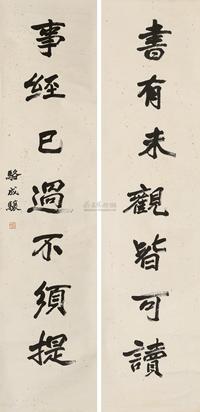 書有未觀皆可讀
事經已過不須提
駱成驤